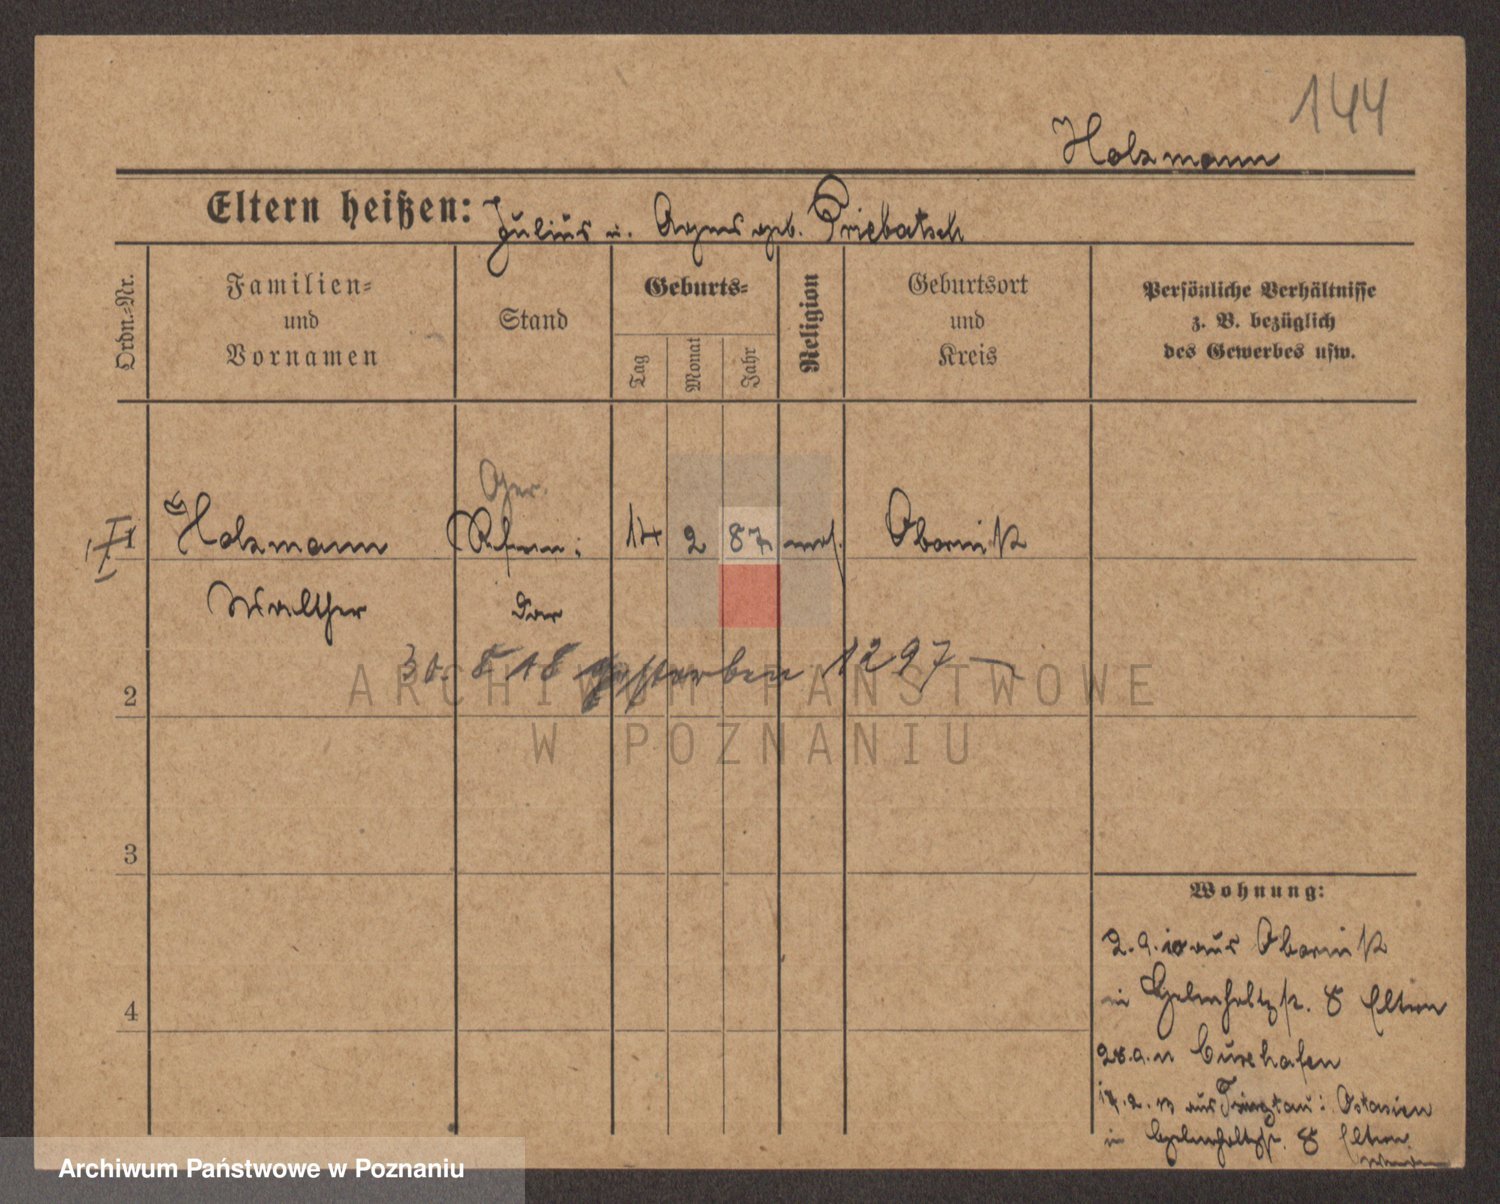 144
Holzmann
Eltern heißen: Julius u. Agnes geb. Priebatsch
Ordn.-Nr.
Familien- und Vornamen
Stand
Geburts-
Tag
Monat
Jahr
Religion
Geburtsort und Kreis
Persönliche Verhältnisse z. B. bezüglich des Gewerbes usw.
1 Holzmann Ger. Referen: 14 2 87 mos. Obornik
Walther dar
30. 8 18 gestorben 1297
2
3
4
Wohnung:
2.9.10 aus Obornik
in 8 Eltern
28.9.11 Cuxhafen
17.2.13 aus Tsingtau: Ostasien
in 8 Eltern
wenden
ARCHIWUM PAŃSTWOWE
W POZNANIU
Archiwum Państwowe w Poznaniu